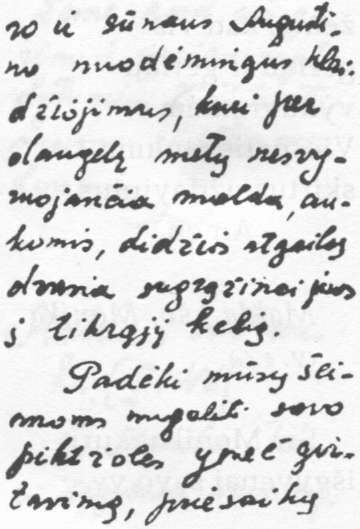 ro ir sūnaus Augusti-
no nuodėmingus klai-
džiojimus, kuri per
daugelį metų nesvy-
ruojančia malda, au-
komis, didžios atgailos
dvasia sugrąžinai juos
į tikrąjį kelią.
Padėki mūsų šei-
moms nugalėti savo
piktžoles ypač gir-
tavimą, priesaikų